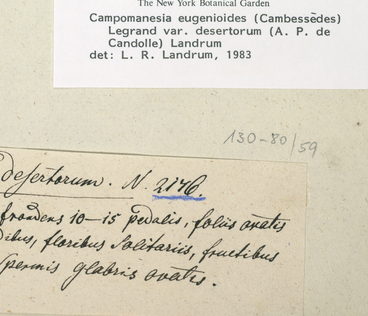 The New York Botanical Garden
Campomanesia eugenioides (Cambessẽdes)
Legrand var. desertorum (A. P. de
Candolle) Landrum
det: L. R. Landrum, 1983
130-80/59
desertorum. N. 2176.
frondens 10-15 pedalis, foliis ovatis
dibus, floribus solitariis, fructibus
spermis glabris ovatis.